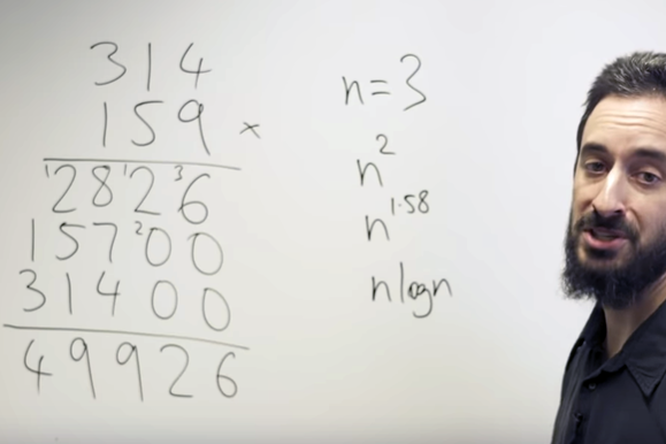 314
159 ×
¹28¹2³6
157²00
31400
49926
n=3
n²
n¹·⁵⁸
nlogn